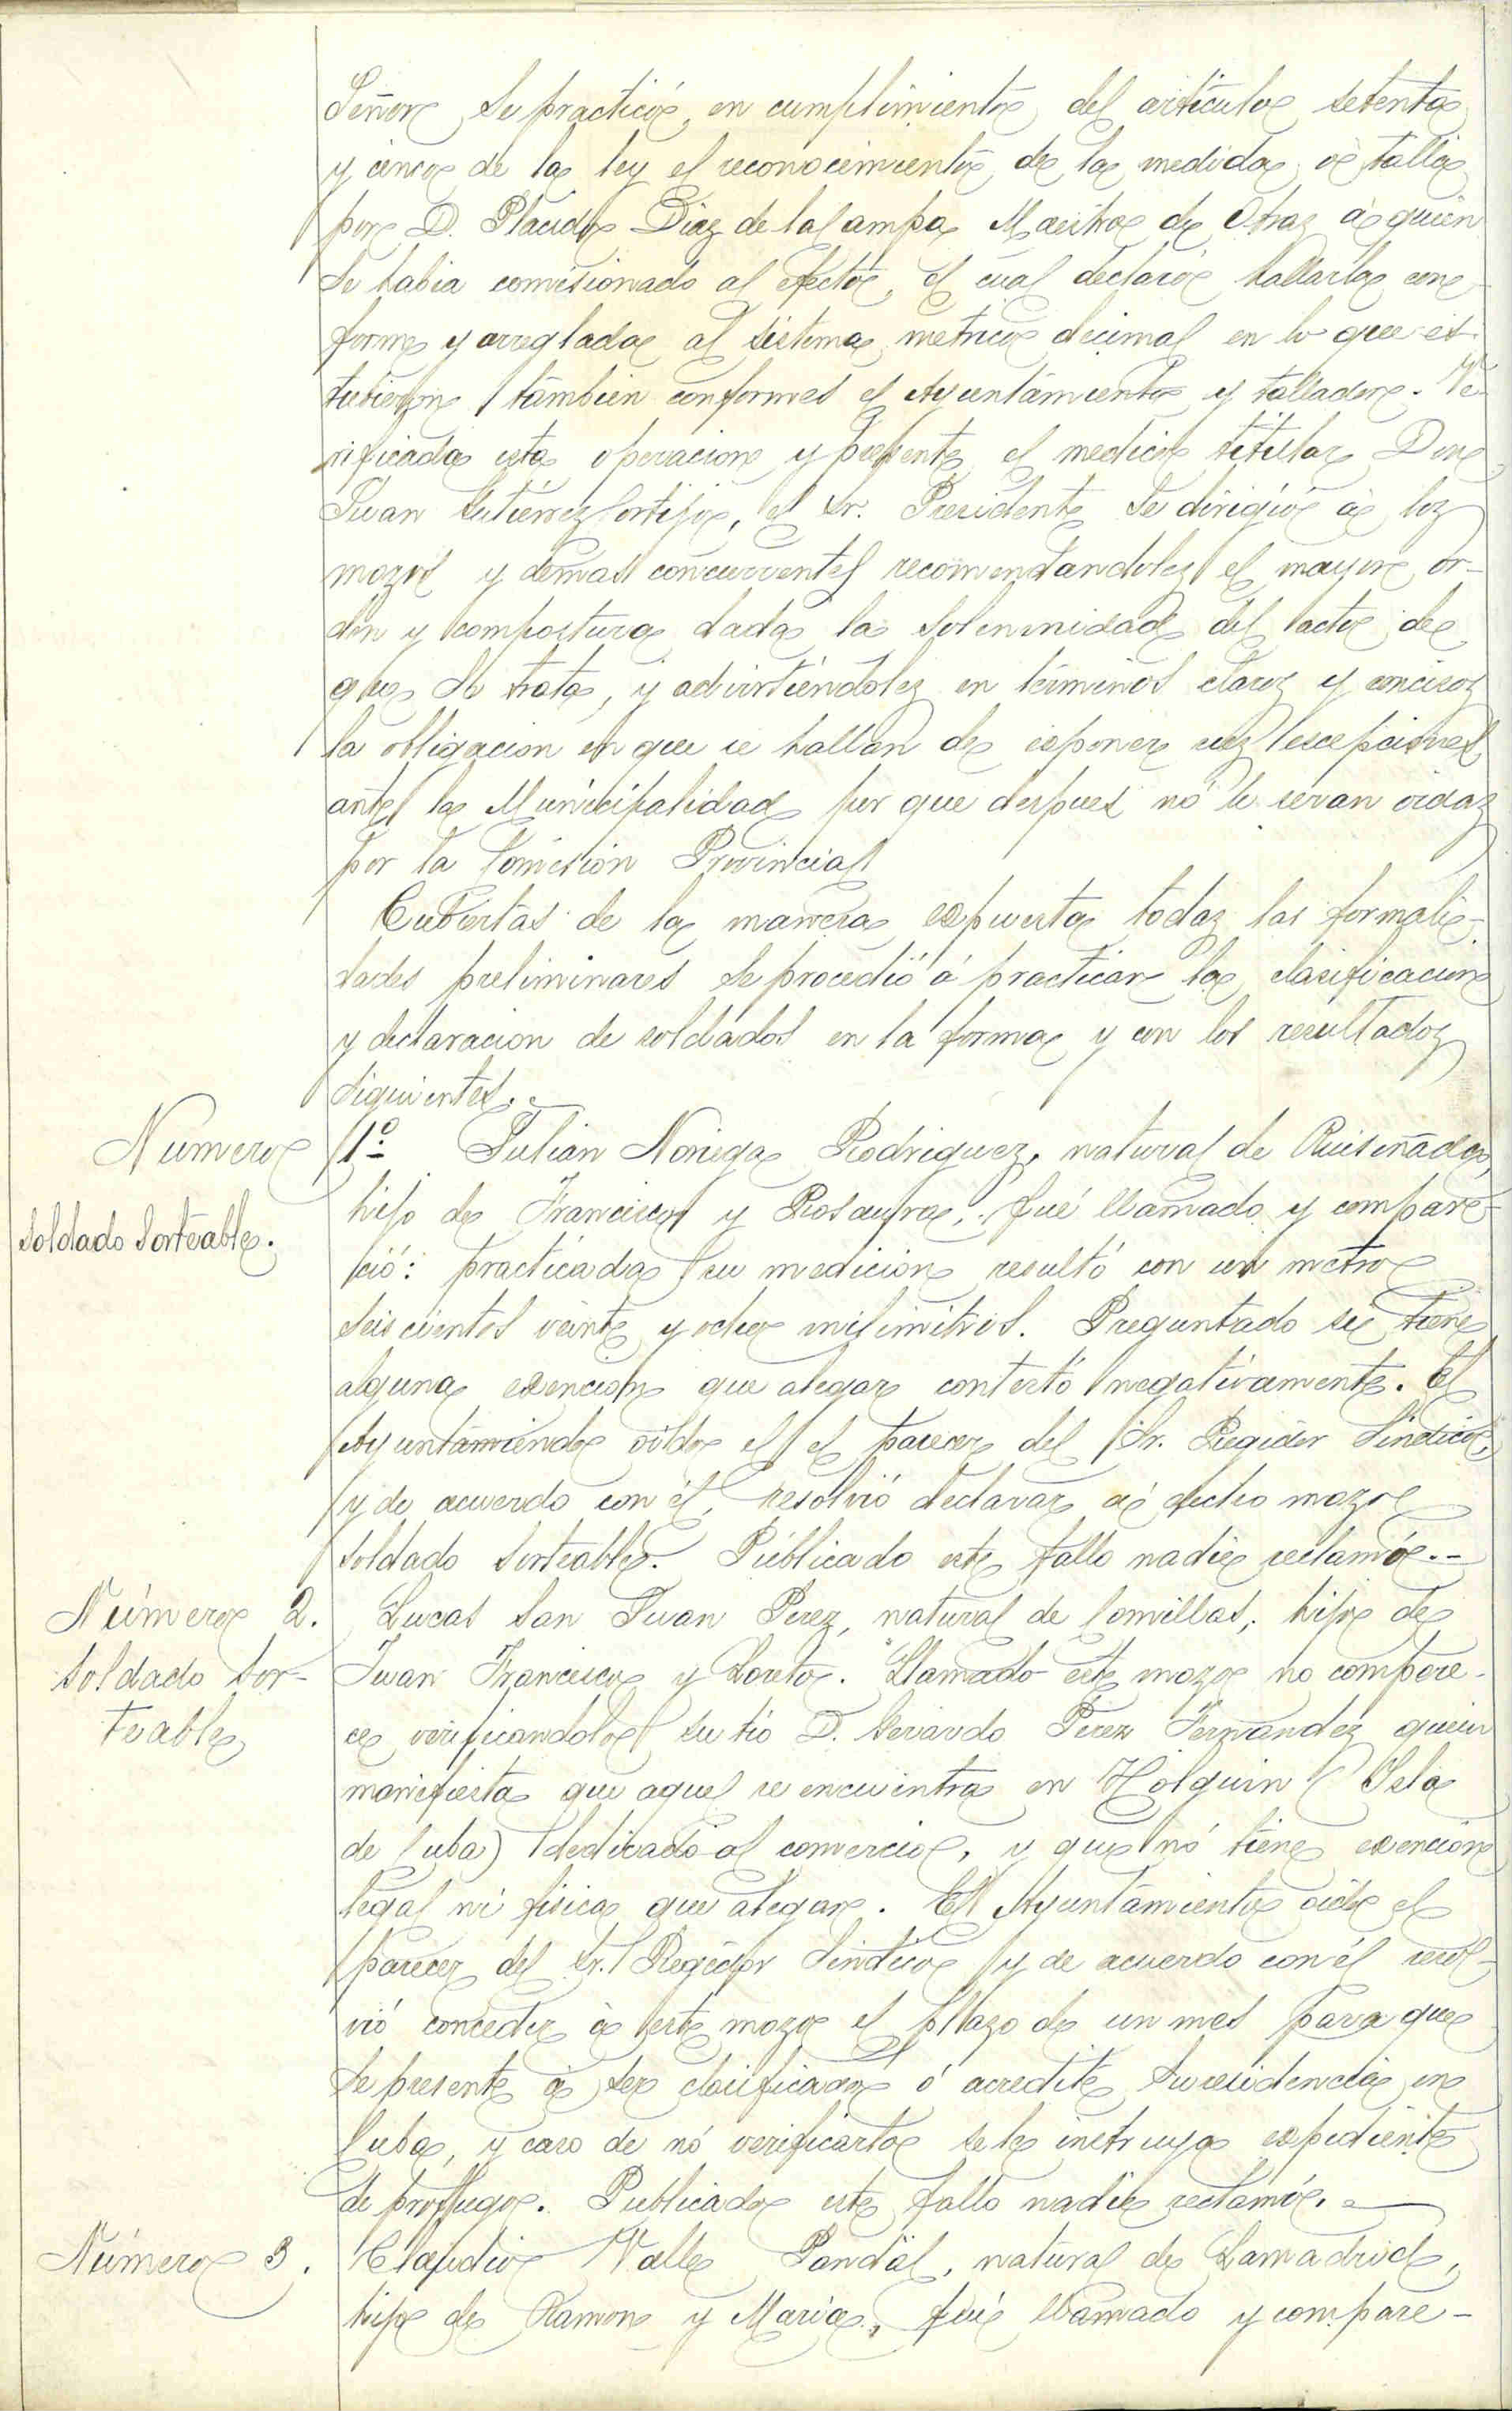 Señor se practicó, en cumplimiento del artículo setenta
y cinco de la ley el reconocimiento de la medida ó talla
por D. Placido Diaz de la Campa Maestro de Obras á quien
se habia comisionado al efecto, el cual declaró hallarla con-
forme y arreglada al sistema metrico decimal en lo que es-
tubieron tambien conformes el Ayuntamiento y tallador. Ve-
rificada esta operacion y presente el medico titular Don
Juan Gutiérrez Cortijo, el Sr. Presidente se dirigió á los
mozos y demas concurrentes recomendandoles el mayor or-
den y compostura dada la solemnidad del acto de
que se trata, y advirtiéndoles en términos claros y concisos
la obligacion en que se hallan de esponer sus escepciones
ante la Municipalidad por que despues nó le seran oidas
por la Comision Provincial
Cubiertas de la manera expuesta todas las formali-
dades preliminares se procedió á practicar la clasificacion
y declaracion de soldados en la forma y con los resultados
siguientes.
Numero 1º Julian Noriega Rodriguez, natural de Ruiseñada,
hijo de Francisco y Rosaura, fué llamado y compare-
Soldado Sorteable.
ció: practicada su medicion resultó con un metro
seiscientos veinte y ocho milimitros. Preguntado si tiene
alguna exencion que alegar contestó negativamente. El
Ayuntamiendo oildo el el parecer del Sr. Regidor Sindico,
y de acuerdo con él, resolvió declarar á dicho mozo
soldado sorteable. Públicado este fallo nadie reclamó.-
Número 2. Lucas San Juan Perez, natural de Comillas, hijo de
Soldado Sor- Juan Francisco y Loreto. Llamado este mozo no compare-
teable ce verificandolo su tió D. Gerardo Pérez Fernandez quien
manifiesta que aquel se encuentra en Holguin (Isla
de Cuba) dedicado al comercio, y que nó tiene exencion
legal ni fisica que alegar. El Ayuntamiento oido el
parecer del Sr. Regidor Sindico y de acuerdo con él resol-
vió conceder á este mozo el plazo de un mes para que
se presente á ser clasificado ó acredite su residencia en
Cuba, y caso de nó verificarlo se le instruya expediente
de proffugo. Publicado este fallo nadie reclamó.
Número 3. Claudio Valle Pandál, natural de Lamadrid,
hijo de Ramon y Maria, fué llamado y compare-